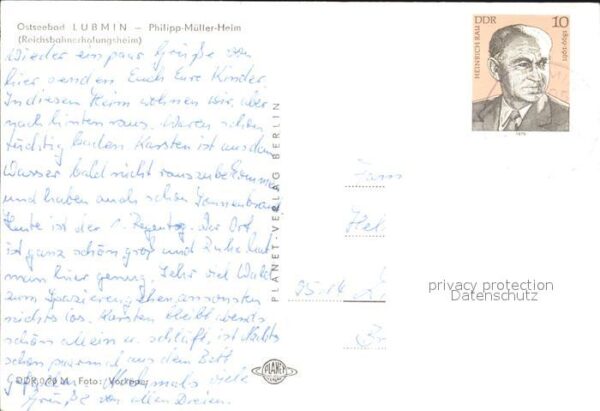 Ostseebad LUBMIN – Philipp-Müller-Heim
(Reichsbahnerholungsheim)
Wieder ein paar Grüße von
hier senden Euch Eure Kinder.
In diesem Heim wohnen wir, aber
nach hinten raus. Waren schon
tüchtig baden Karsten ist aus dem
Wasser bald nicht rauszubekommen
und haben auch schon Sonnenbrand
Heute ist der 1. Regentag. Der Ort
ist ganz schön groß und Ruhe hat
man hier genug. Sehr viel Wald
zum Spazierengehen ansonsten
nichts los. Karsten bleibt abends
schön allein u. schläft, ist nachts
schon paarmal aus dem Bett
gefallen. Nochmals viele
Grüße von allen Dreien.
DDR 0,20 M Foto:
PLANET-VERLAG BERLIN
PLANET
HEINRICH RAU
DDR
10
1899-1961
1979
Fam
Hel
privacy protection
Datenschutz